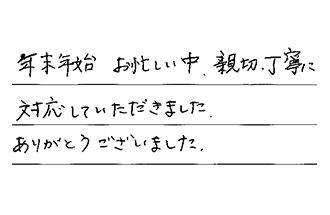 年末年始 お忙しい中、親切、丁寧に
対応していただきました。
ありがとうございました。